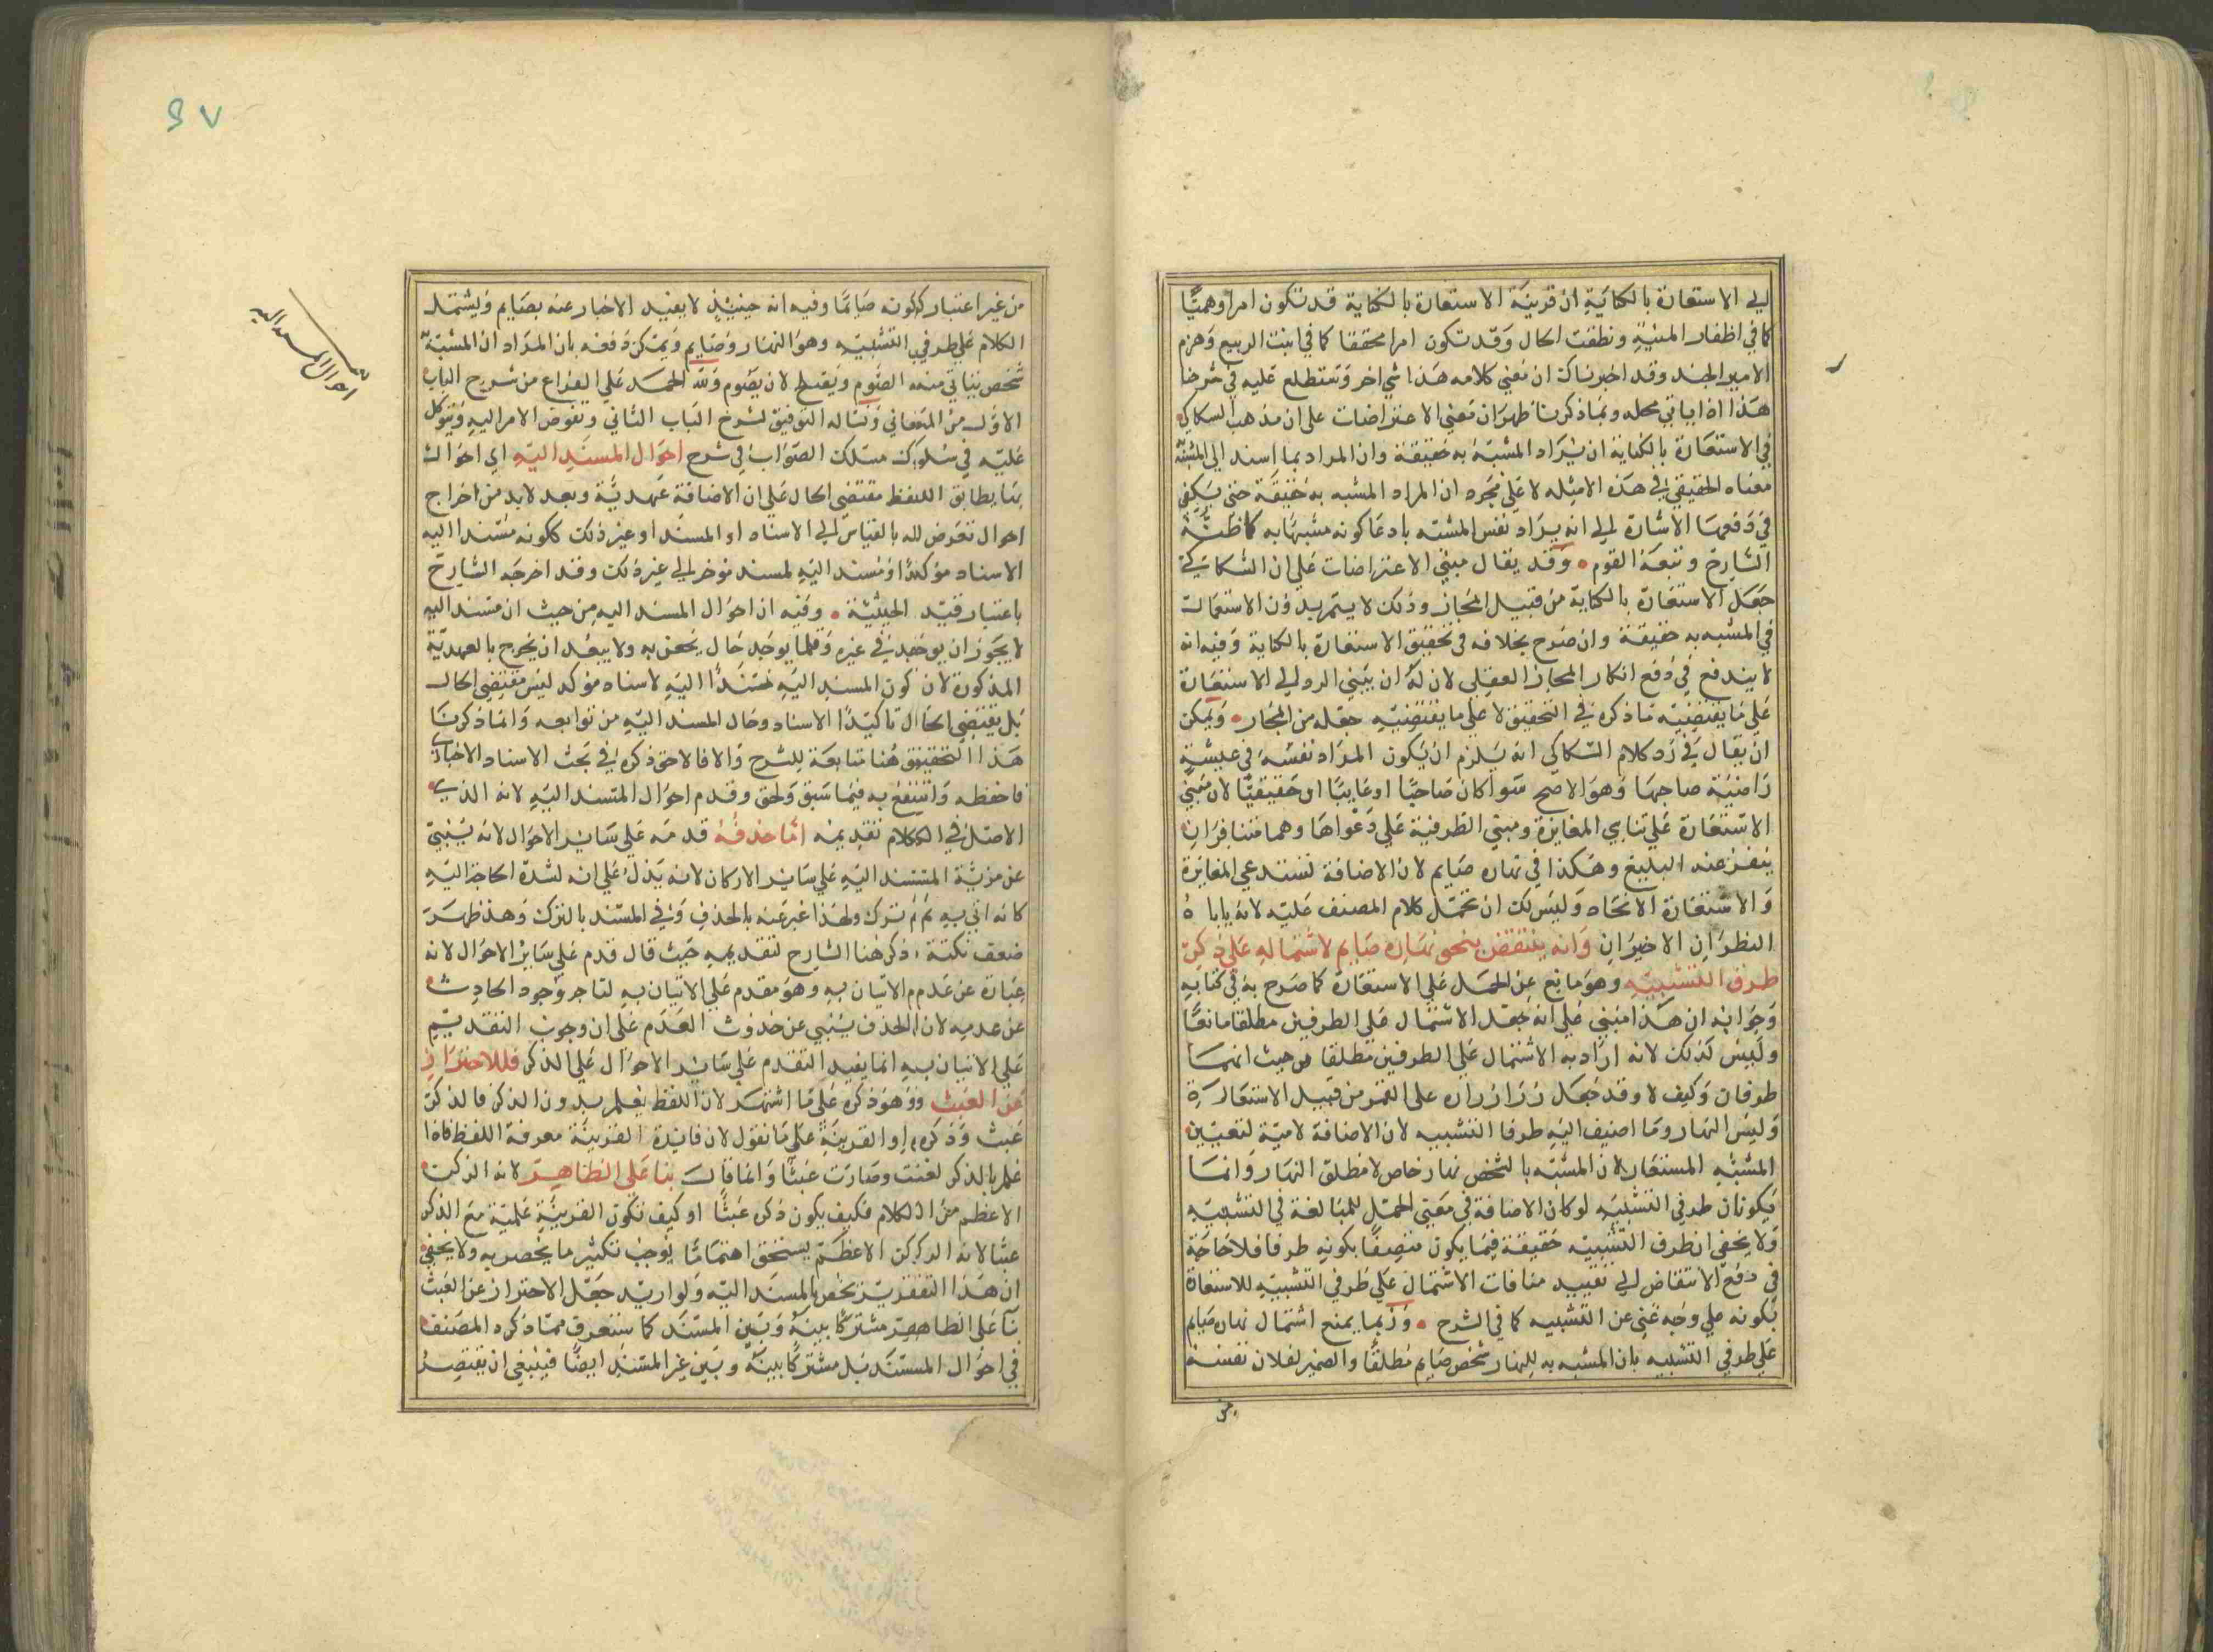 الي الاستعارة بالكناية ان قرينة الاستعارة بالكناية قد تكون امرا وهميًّا
كما في اظفار المنية ونطقت الحال وقد تكون امرا محققا كما في انبت الربيع وهزم
الامير الجند وقد اخبرناك ان معني كلامه هذا شي اخر وستطلع عليه في شرحنا
هذا اذا ياتي محله وبما ذكرنا ظهر ان مبني الاعتراضات على ان مذهب السكاكي
في الاستعارة بالكناية ان يراد المشبه به حقيقة وان المراد بما اسند الي المشبه
معناه الحقيقي في هذه الامثله لا علي مجرد ان المراد المشبه به حقيقة حتي يكفي
في دفعها الاشارة الي انه يراد نفس المشبه بادعا كونه مشبها به كما ظنه
الشارح وتبعه القوم • وقد يقال مبني الاعتراضات علي ان السكاكي
جعل الاستعارة بالكناية من قبيل المجاز وذلك لا يتم بدون الاستعمال
في المشبه به حقيقة وان صرح بخلافه في تحقيق الاستعارة بالكناية وفيه انه
لا يندفع في دفع انكار المجاز العقلي لان له ان يبني الرد الي الاستعارة
علي ما يقتضيه ما ذكره في التحقيق لا علي ما يقتضيه جعله من المجاز • ويمكن
ان يقال في رد كلام السكاكي انه يلزم ان يكون المراد نفسه في عيشة
راضية صاحبها وهو الاصح سوا كان صاحبًا او غايبًا او حقيقيًّا لان مبني
الاستعارة علي تناسي المغايرة ومبني الظرفية علي دعواها وهما متنافران
ينفر عند البليغ وهكذا في نهاره صايم لان الاضافة تستدعي المغايرة
والاستعارة الاتحاد وليس لك ان تحمل كلام المصنف عليه لانه ياباه
النظران الاخيران وانه ينتقض بنحو نهاره صايم لاشتماله علي ذكر
طرفي التشبيه وهو مانع عن الحمل علي الاستعارة كما صرح به في كتابه
وجوابه ان هذا مبني علي انه جعل الاشتمال علي الطرفين مطلقا مانعًا
وليس كذلك لانه اراد به الاشتمال علي الطرفين مطلقا من حيث انهما
طرفان وكيف لا وقد جعل زر ازراره على القمر من قبيل الاستعارة
وليس النهار وما اضيف اليه طرفا التشبيه لان الاضافة لامية لتعيين
المشبه المستعار لان المشبه بالشخص نهار خاص لا مطلق النهار وانما
يكونان طرفي التشبيه لو كان الاضافة في معني الحمل للمبالغة في التشبيه
ولا يخفي ان طرف التشبيه حقيقة فيما يكون متصفًا بكونه طرفا فلا حاجة
في دفع الانتقاض الي تقييد منافات الاشتمال علي طرفي التشبيه للاستعارة
بكونه علي وجه ينبئ عن التشبيه كما في الشرح • وربما يمنع اشتمال نهاره صايم
علي طرفي التشبيه بان المشبه به للنهار شخص صايم مطلقًا والضمير لفلان نفسه
من
٩٧
احوال المسند اليه
من غير اعتبار كونه صايمًا وفيه انه حينيذٍ لا يفيد الاخبار عنه بصايم ويشتمل
الكلام علي طرفي التشبيه وهو النهار وصايم ويمكن دفعه بان المراد ان المشبه به
شخص يتاتي منه الصوم ويقبط لان يصوم ولله الحمد علي الفراغ من شرح الباب
الاول من المعاني ونساله التوفيق لشرح الباب الثاني ونفوض الامر اليه ونتوكل
عليه في سلوك مسلك الصواب في شرح احوال المسند اليه اي احوال
بها يطابق اللفظ مقتضي الحال علي ان الاضافة عهدية وبعد لابد من اخراج
احوال تعرض له بالقياس الي الاسناد او المسند او غير ذلك ككونه مسندا اليه
الاسناد مؤكدًا او مسند اليه لمسند موخر الي غير ذلك وقد اخرجه الشارح
باعتبار قيد الحيثية • وفيه ان احوال المسند اليه من حيث ان مسند اليه
لا يجوز ان يوجد في غيره وقلما يوجد حال يختص به ولا يبعد ان يخرج بالعهدية
المذكورة لان كون المسند اليه مسندًا اليه لاسناد مؤكد ليس مقتضي الحال
بل يقتضي الحال تاكيدًا الاسناد وحال المسند اليه من توابعه وانما ذكرنا
هذا التحقيق هنا متابعة للشرح والا فالاحق ذكره في بحث الاسناد الاخباري
فاحفظه وانتفع به فيما سبق ولحق وقدم احوال المسند اليه لانه الذي
الاصل في الكلام تقديمه اما حذفه قدمه علي ساير الاحوال لانه ينبئ
عن مزية المسند اليه علي ساير الاركان لانه يدل علي انه لشدة الحاجة اليه
كانه اتي به ثم ترك ولهذا عبر عنه بالحذف وفي المسند بالترك وهذا ظهر
ضعف نكتة ذكرهنا الشارح لتقديمه حيث قال قدم علي ساير الاحوال لانه
عبارة عن عدم الاتيان به وهو مقدم علي الاتيان به لتاخر وجود الحادث
عن عدمه لان الحذف ينبي عن حدوث العدم علي ان وجوب التقديم
علي الاتيان به انما يفيد التقدم علي ساير الاحوال علي الذكر فللاحتراز
عن العبث وهو ذكره علي ما اشتهر لان اللفظ يعلم بدون الذكر فالذكر
عبث وذكره او القرينة علي ما نقول لان فايدة القرينة معرفة اللفظ فاذا
علم بالذكر لغت وصارت عبثًا وانما قال بنا علي الظاهر لانه الركن
الاعظم من الكلام فكيف يكون ذكره عبثًا او كيف تكون القرينة علمية مع الذكر
عبثا لانه الركن الاعظم يستحق اهتمامًا يوجب تكثير ما يخصر به ولا يخفي
ان هذا التقرير يختص بالمسند اليه ولو اريد جعل الاحتراز عن العبث
بنآ علي الظاهر مشتركًا بينه وبين المسند كما ستعرف مما ذكره المصنف
في احوال المسند بل مشتركًا بينه وبين غير المسند ايضًا فينبغي ان يقتصر